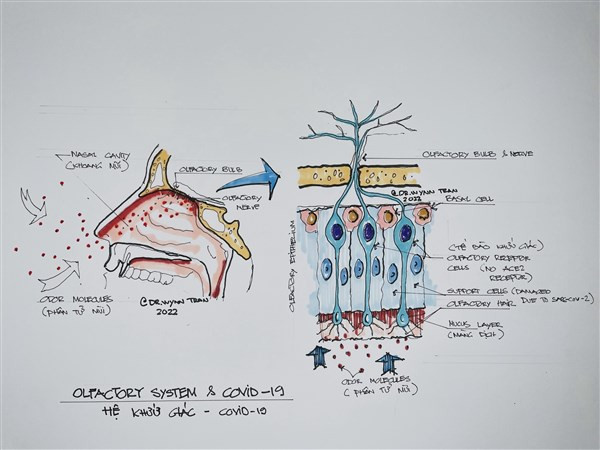 NASAL CAVITY
(KHOANG MŨI)
OLFACTORY BULB
OLFACTORY
NERVE
ODOR MOLECULES
(PHÂN TỬ MÙI)
@DR.WYNN TRAN
2022
OLFACTORY BULB & NERVE
@DR.WYNN TRAN
2022
BASAL CELL
OLFACTORY EPITHELIUM
(TẾ BÀO KHỨU GIÁC)
OLFACTORY RECEPTOR
CELLS (NO ACE2
RECEPTOR)
SUPPORT CELLS (DAMAGED
DUE TO SARS-COV-2)
OLFACTORY HAIR
MUCUS LAYER
(MÀNG DỊCH)
ODOR MOLECULES
(PHÂN TỬ MÙI)
OLFACTORY SYSTEM & COVID-19
HỆ KHỨU GIÁC - COVID-19